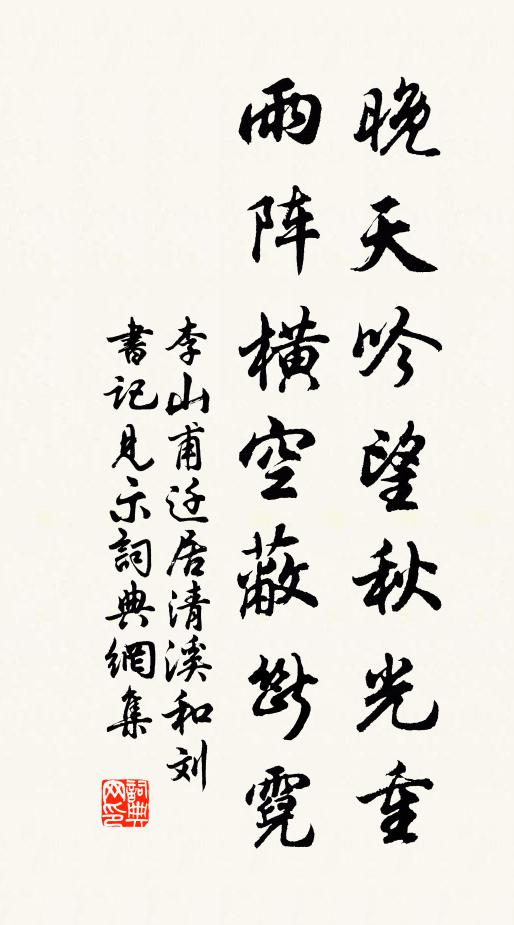 晚天吟望秋光重
雨阵横空蔽断霓
李山甫迁居清溪和刘
書记見示詞典網集
詞典
网印